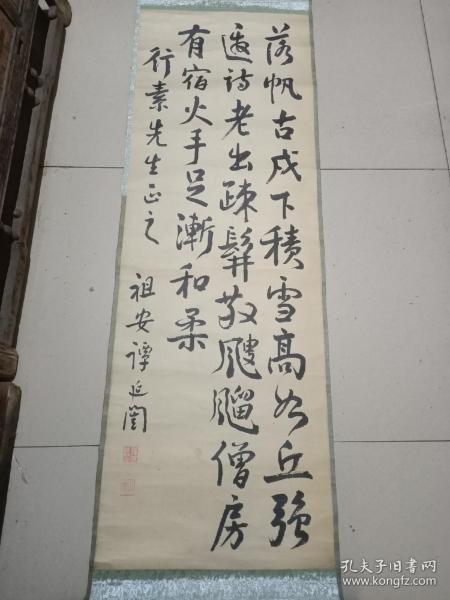 落帆古戍下積雪高如丘强
邀詩老出疎髯散颼飀僧房
有宿火手足漸和柔
行素先生正之
祖安譚延闓
孔夫子旧书网
www.kongfz.com